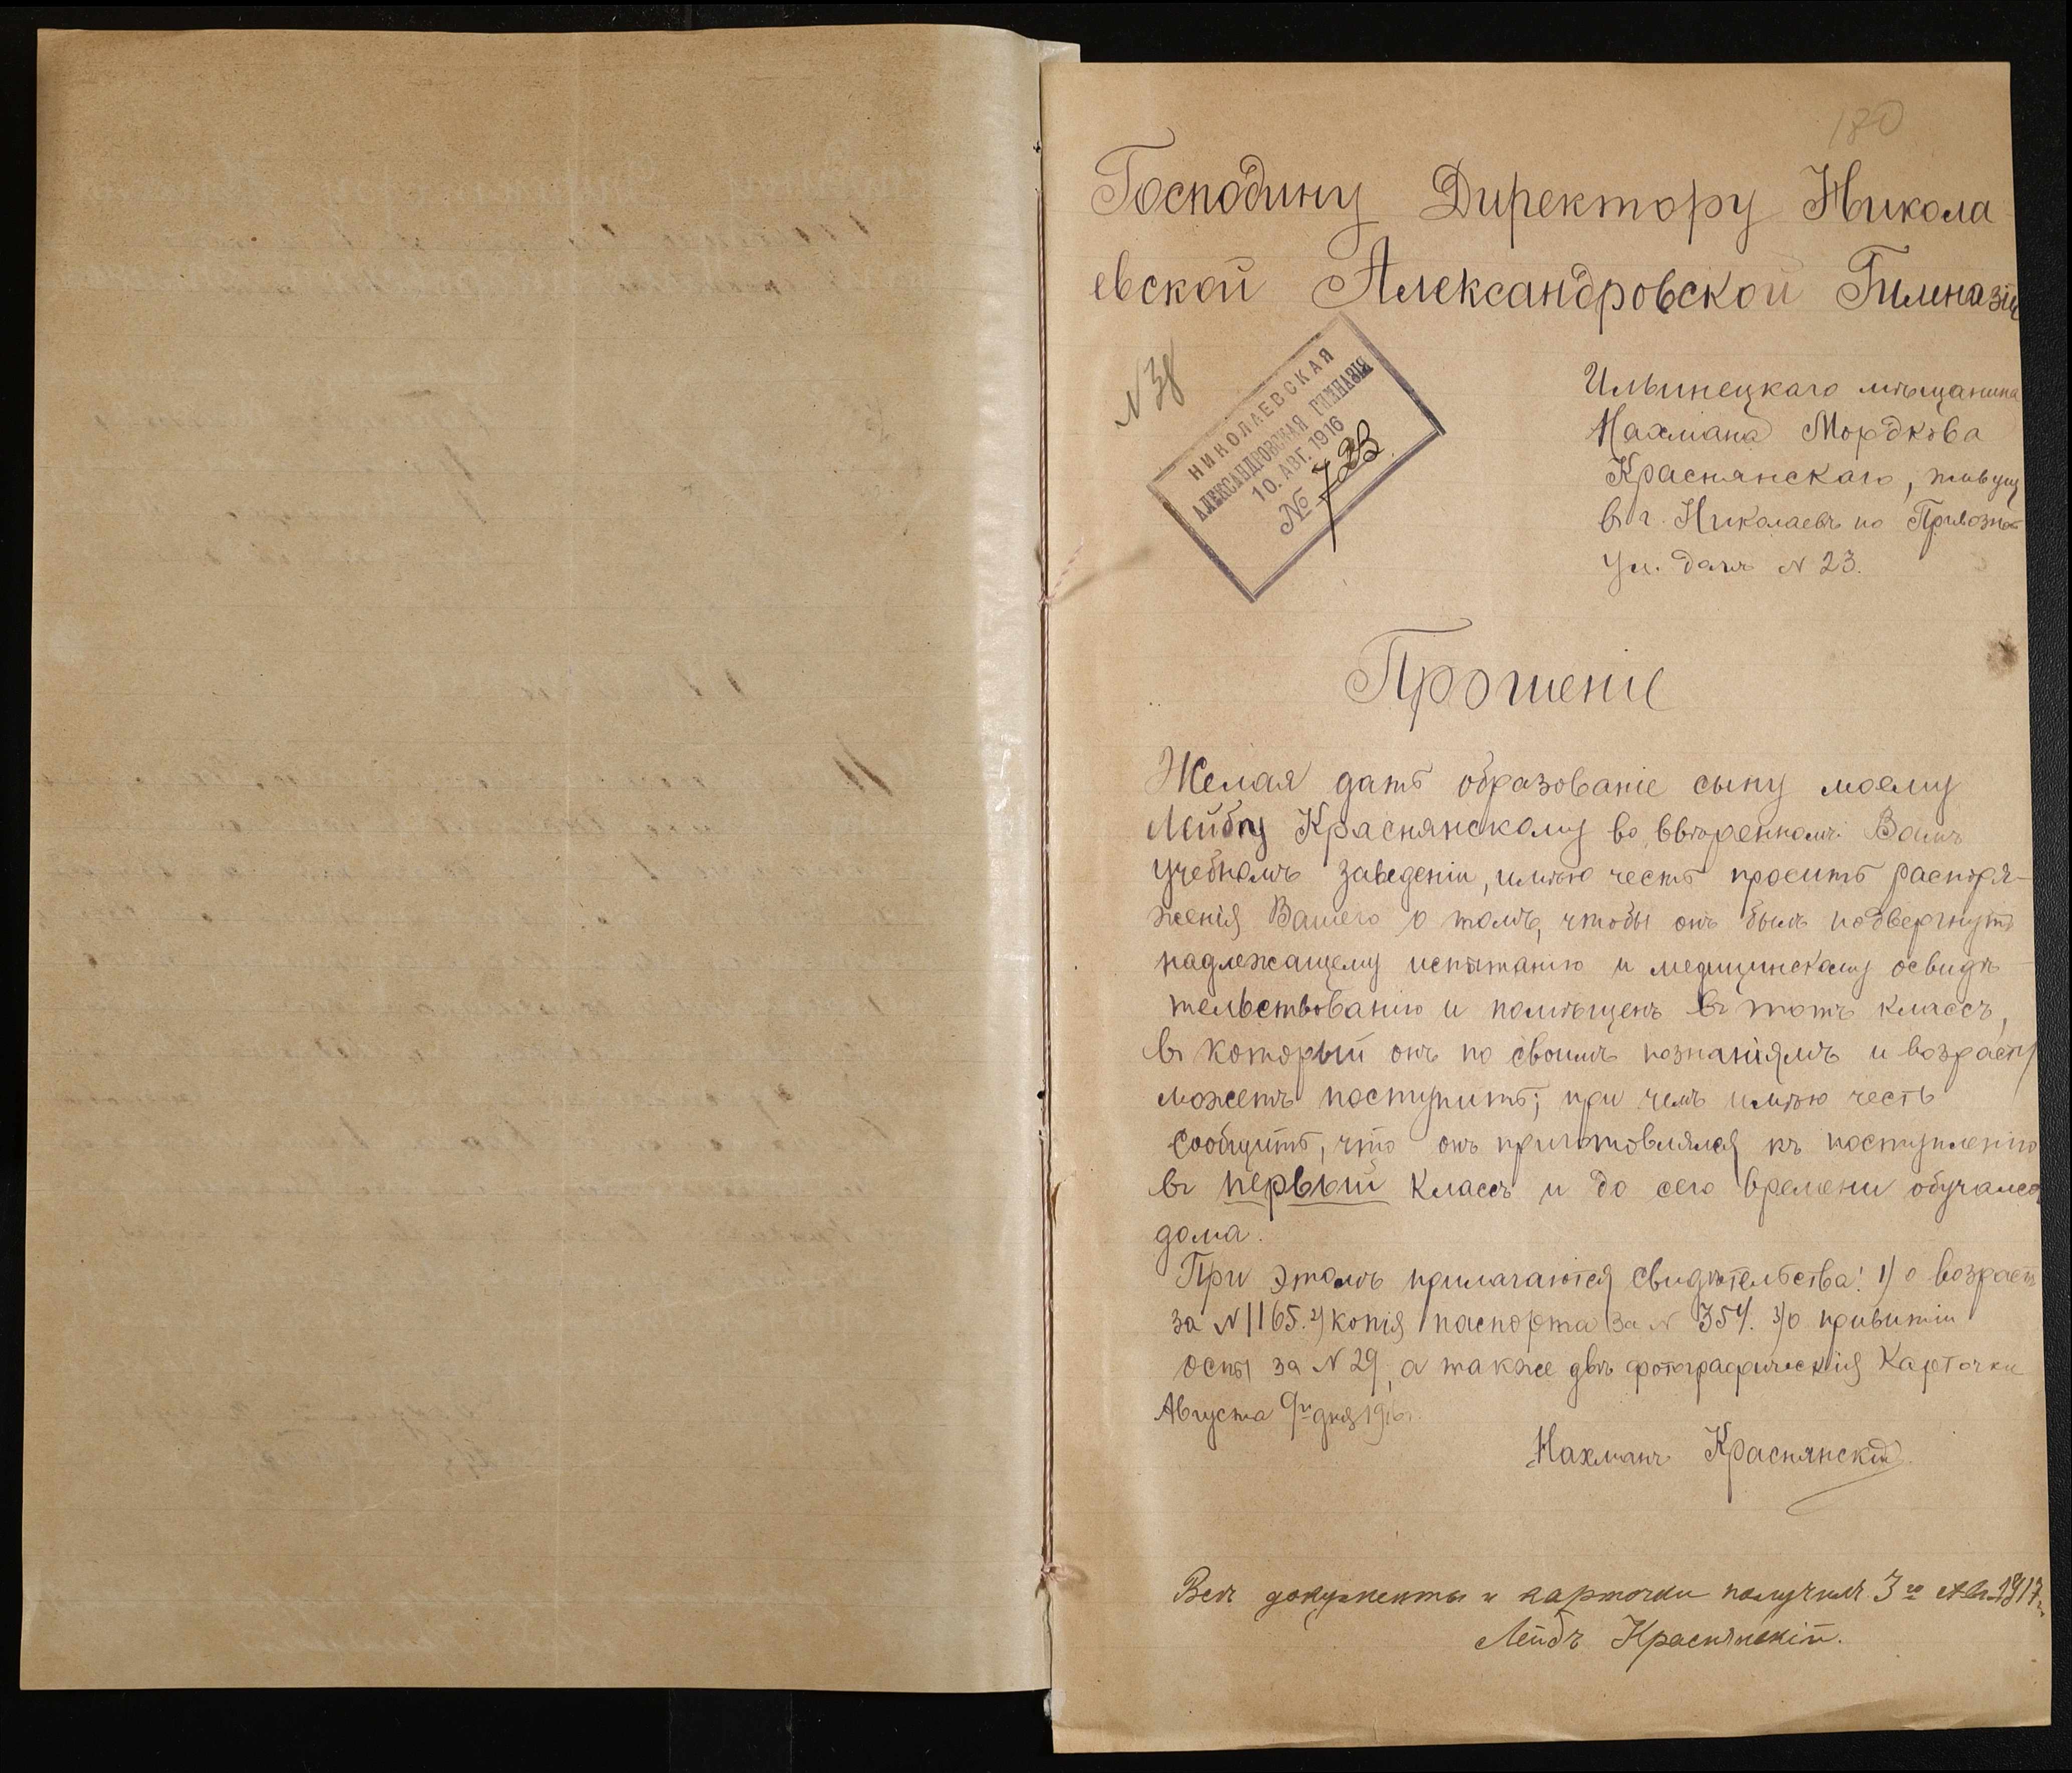 180
Господину Директору Никола
евской Александровской Гимназіи
N 38
НИКОЛАЕВСКАЯ
АЛЕКСАНДРОВСКАЯ ГИМНАЗІЯ
10. АВГ. 1916
№
Ильинецкаго мѣщанина
Нахмана Мордкова
Краснянскаго, живущ
въ г. Николаевѣ по Привозной
ул. домъ N 23.
Прошеніе
Желая дать образованіе сыну моему
Лейбу Краснянскому во ввѣренномъ Вамъ
учебномъ заведеніи, имѣю честь просить распоря-
женія Вашего о томъ, чтобы онъ былъ подвергнутъ
надлежащему испытанію и медицинскому освидѣ-
тельствованію и помѣщенъ въ тотъ классъ,
въ который онъ по своимъ познаніямъ и возрасту
можетъ поступить; при чемъ имѣю честь
сообщить, что онъ приготовлялся къ поступленію
въ первый классъ и до сего времени обучался
дома.
При этомъ прилагаются свидѣтельства: 1) о возрастѣ
за N 1165. 2) копія паспорта за N 354. 3) о привитіи
оспы за N 29, а также двѣ фотографическія карточки
Августа 9го дня 1916г.
Нахманъ Краснянскій.
Всѣ документы и карточки получилъ 3го Авг. 1917г.
Лейбъ Краснянскій.